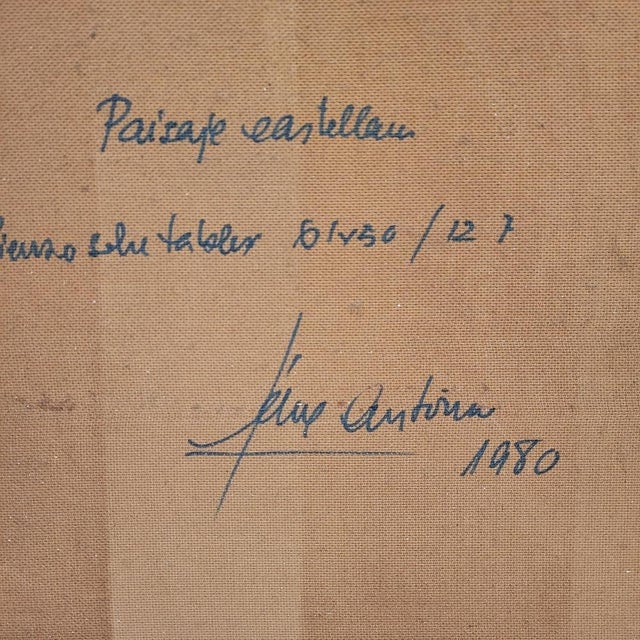 Paisaje castellano
lienzo sobre tablex 61x50 / 12 F
Antonio
1980